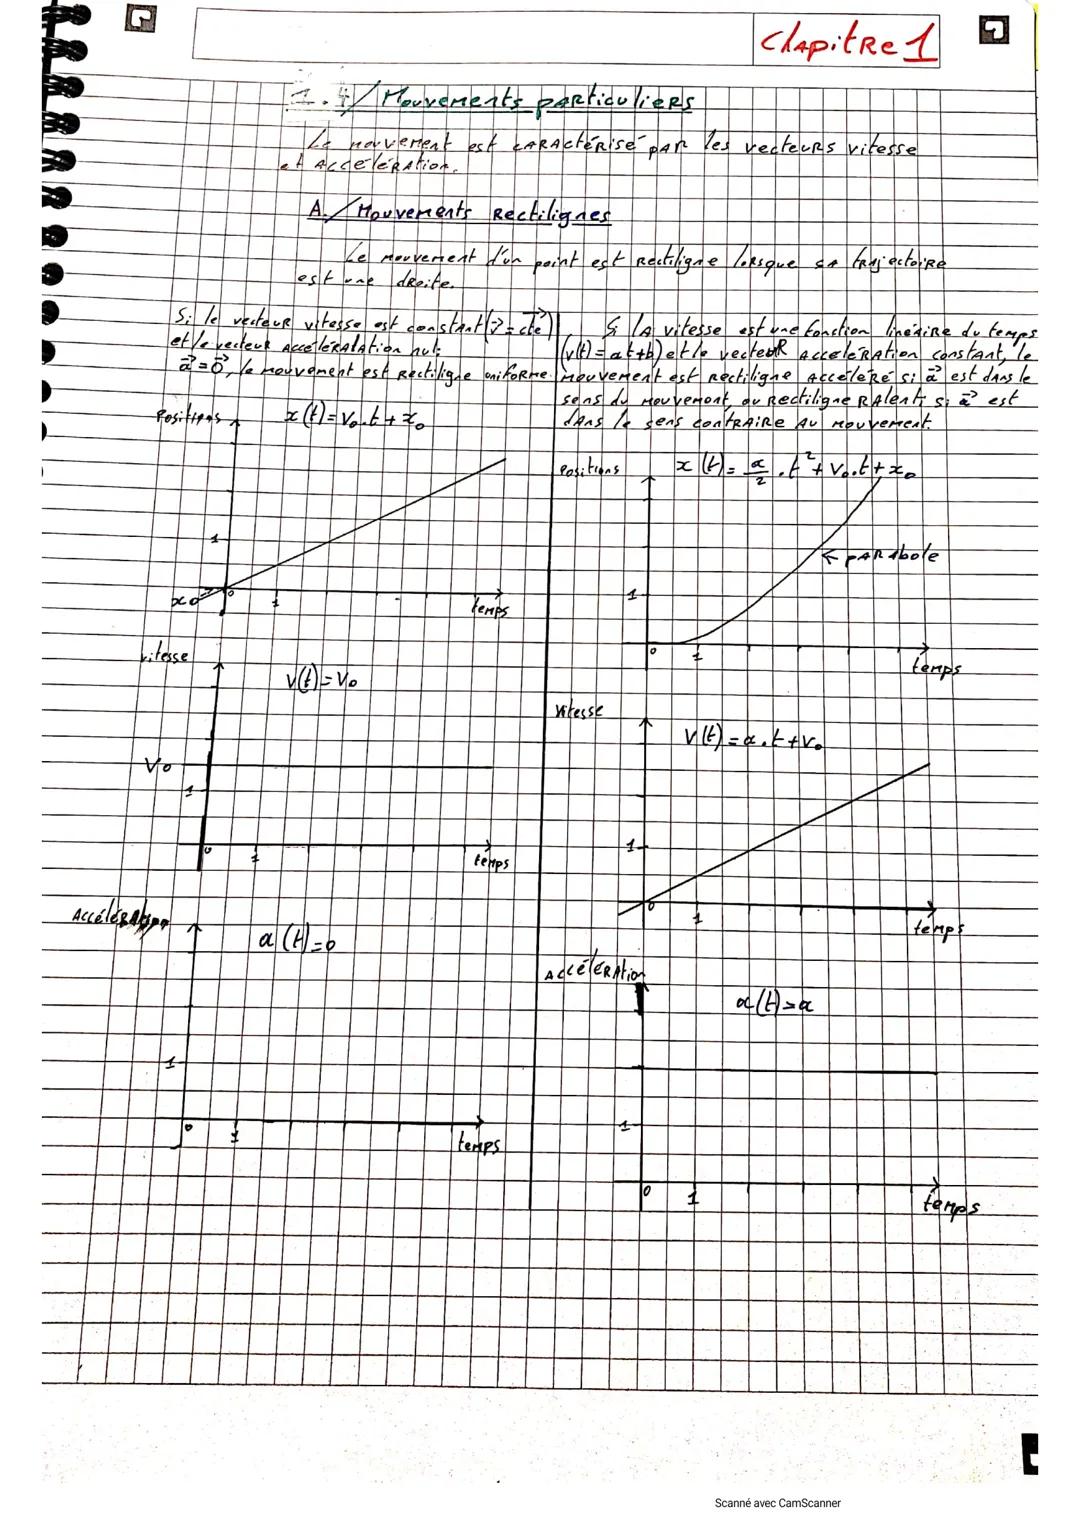 Chapitre 1
1.4/ Mouvements particuliers
Le mouvement est caractérisé par les vecteurs vitesse
et accélération.
A./ Mouvements Rectilignes
Le mouvement d'un point est rectiligne lorsque sa trajectoire
est une droite.
Si le vecteur vitesse est constant (v⃗ = cte⃗)
et le vecteur accélération nul:
a⃗ = 0⃗, le mouvement est rectiligne uniforme.
Positions
x(t) = V₀.t + x₀
1
x₀
0
1
temps
vitesse
V(t) = V₀
V₀
1
0
1
temps
Accélération
a(t) = 0
1
0
1
temps
Si la vitesse est une fonction linéaire du temps
(v(t) = at+b) et le vecteur accélération constant, le
mouvement est rectiligne accéléré si a⃗ est dans le
sens du mouvement, ou rectiligne ralenti si a⃗ est
dans le sens contraire au mouvement.
Positions
x(t) = a/2 . t² + V₀.t + x₀
← parabole
1
0
1
temps
Vitesse
V(t) = a.t + V₀
1
0
1
temps
Accélération
a(t) = a
1
0
1
temps
Scanné avec CamScanner